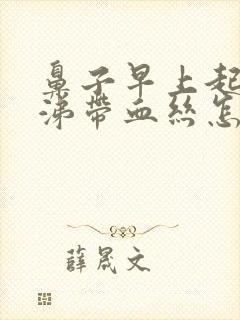 鼻子早上起
涕帶血絲怎
薛晟文